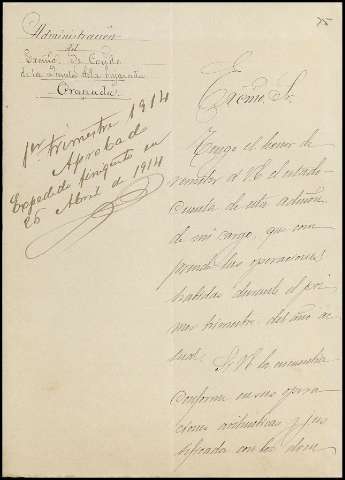 75
Administración
del
Excmo. Sr. Conde
de la Puebla del
Granada.
1er trimestre 1914
Aprobado
Expedido finiquito en
25 Abril de 1914
Excmo. Sr.
Tengo el honor de
remitir a V.E. el estado-
cuenta de esta admón.
de mi cargo, que com
prende las operaciones
habidas durante el pri
mer trimestre del año ac
tual. Si V.E. lo encuentra
conforme en sus opera
ciones aritméticas y jus
tificada con los docu